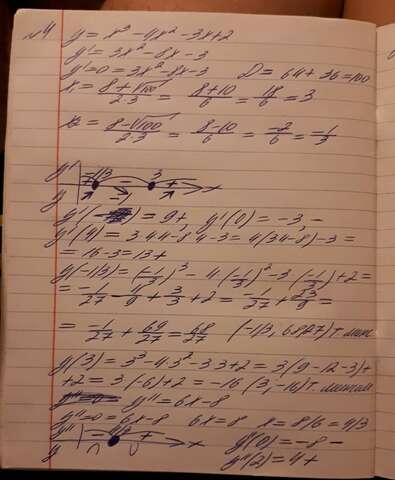 №4 y = x³ - 4x² - 3x + 2
y' = 3x² - 8x - 3
y' = 0 = 3x² - 8x - 3 D = 64 + 36 = 100
x₁ = (8 + √100)/(2·3) = (8 + 10)/6 = 18/6 = 3
x₂ = (8 - √100)/(2·3) = (8 - 10)/6 = -2/6 = -1/3
y' + -1/3 - 3 + x
y
y'( ) = 9 +, y'(0) = -3, -
y'(4) = 3·4·4 - 8·4 - 3 = 4(3·4 - 8) - 3 =
= 16 - 3 = 13 +
y(-1/3) = (-1/3)³ - 4(-1/3)² - 3(-1/3) + 2 =
= -1/27 - 4/9 + 3/3 + 2 = -1/27 + 23/9 =
= -1/27 + 69/27 = 68/27 (-1/3, 68/27) т
y(3) = 3³ - 4·3² - 3·3 + 2 = 3(9 - 12 - 3) +
+ 2 = 3(-6) + 2 = -16 (3, -16) т
y'' = 6x - 8
y'' = 0 = 6x - 8 6x = 8 x = 8/6 = 4/3
y'' - 4/3 + x y''(0) = -8 -
y ∩ ∪ y''(2) = 4 +